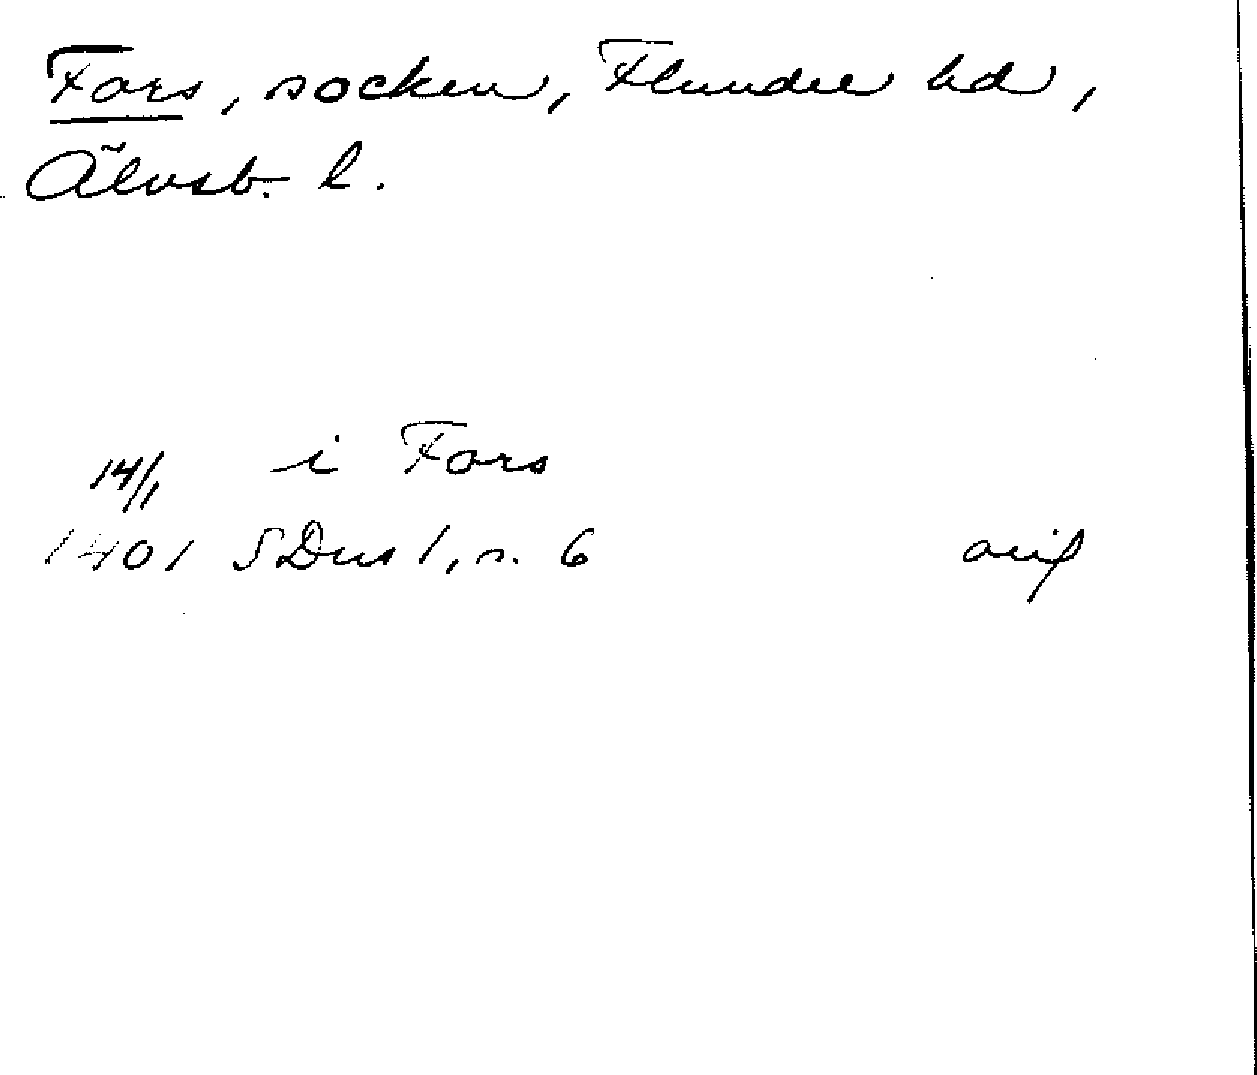 Fors, socken, Flundre hd,
Älvsb. l.
14/1 i Fors
1401 SDns 1, s. 6 avip